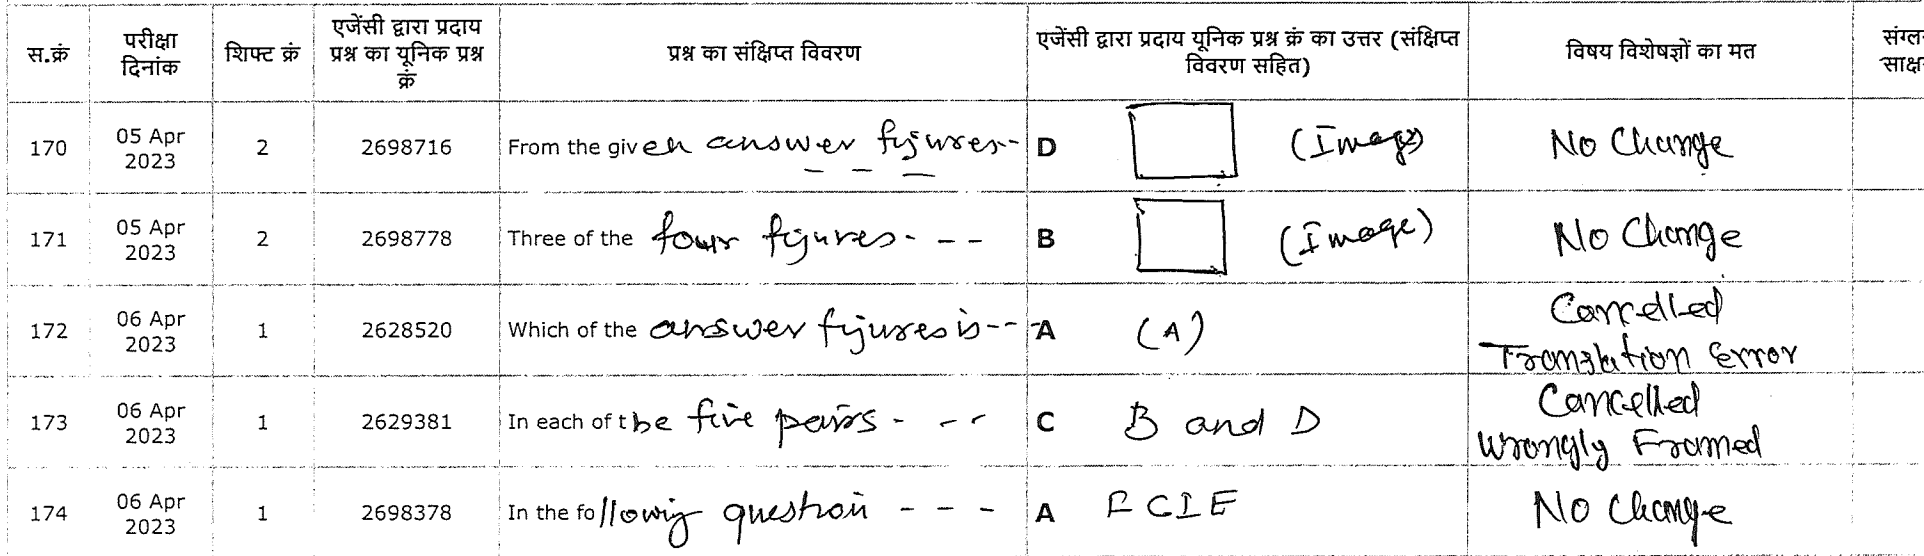 स.क्रं
परीक्षा
दिनांक
शिफ्ट क्रं
एजेंसी द्वारा प्रदाय
प्रश्न का यूनिक प्रश्न
क्रं
प्रश्न का संक्षिप्त विवरण
एजेंसी द्वारा प्रदाय यूनिक प्रश्न क्रं का उत्तर (संक्षिप्त
विवरण सहित)
विषय विशेषज्ञों का मत
170
05 Apr
2023
2
2698716
From the given answer figures--
D
(Image)
No Change
171
05 Apr
2023
2
2698778
Three of the four figures- - -
B
(Image)
No Change
172
06 Apr
2023
1
2628520
Which of the answer figures is---
A
(A)
Cancelled
Translation Error
173
06 Apr
2023
1
2629381
In each of the five pairs - - -
C
B and D
Cancelled
Wrongly Framed
174
06 Apr
2023
1
2698378
In the following question - - - -
A
No Change